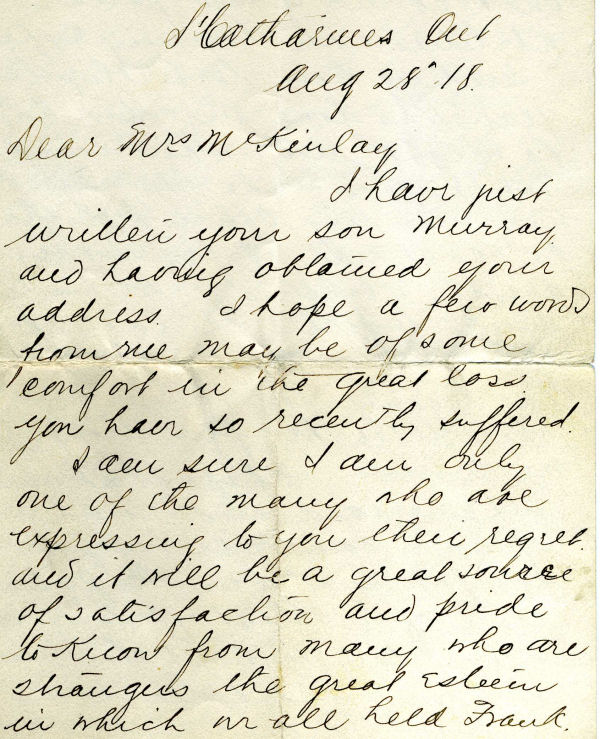 St Catharines Ont
Aug 28" 18.
Dear Mrs McKinlay
I have just
written your son Murray
and having obtained your
address I hope a few words
from me may be of some
comfort in the great loss
you have so recently suffered.
I am sure I am only
one of the many who are
expressing to you their regret
and it will be a great source
of satisfaction and pride
to know from many who are
strangers the great esteem
in which we all held Frank.